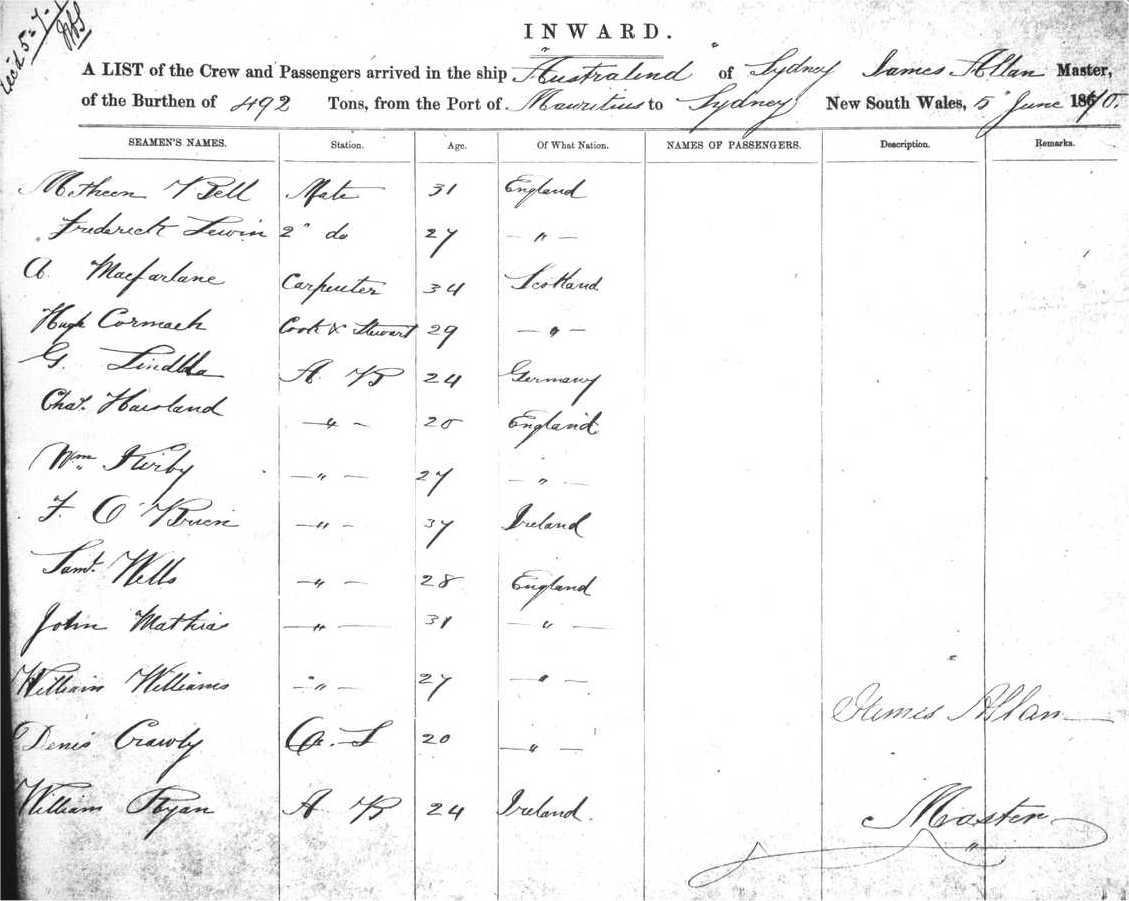 Rec'd 5-7-
INWARD.
A LIST of the Crew and Passengers arrived in the ship "Australind" of Sydney James Allan Master,
of the Burthen of 492 Tons, from the Port of Mauritius to Sydney New South Wales, 5" June 1870.
SEAMEN'S NAMES. Station. Age. Of What Nation. NAMES OF PASSENGERS. Description. Remarks.
Bell Mate 31 England
Frederick Lewin 2" do 27 — " —
A. Macfarlane Carpenter 34 Scotland
Hugh Cormack Cook & Stewart 29 — " —
G. A B 24 Germany
Chas. — " — 20 England
Wm. Kirby — " — 27 — " —
F. O'Brien — " — 37 Ireland
Saml. Wells — " — 28 England
John Mathias — " — 31 — " —
William Williams — " — 27 — " —
Denis Crawly O. S 20 — " —
William Ryan A B 24 Ireland.
James Allan
Master